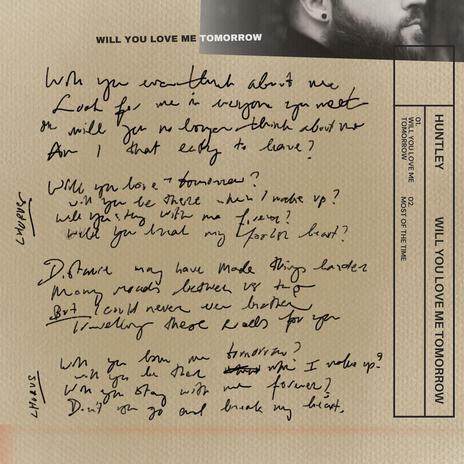 WILL YOU LOVE ME TOMORROW
Will you even think about me
Look for me in everyone you meet
Or will you no longer think about me
Am I that easy to leave?
Will you love tomorrow?
Will you be there when I wake up?
Will you stay with me forever?
Will you break my foolish heart?
CHORUS
Distance may have made things harder
Many roads between us two
But I could never ever bother
Travelling these roads for you
Will you love me tomorrow?
Will you be there when I wake up?
Will you stay with me forever?
Don't you go and break my heart.
CHORUS
HUNTLEY
WILL YOU LOVE ME TOMORROW
01.
WILL YOU LOVE ME
TOMORROW
02.
MOST OF THE TIME